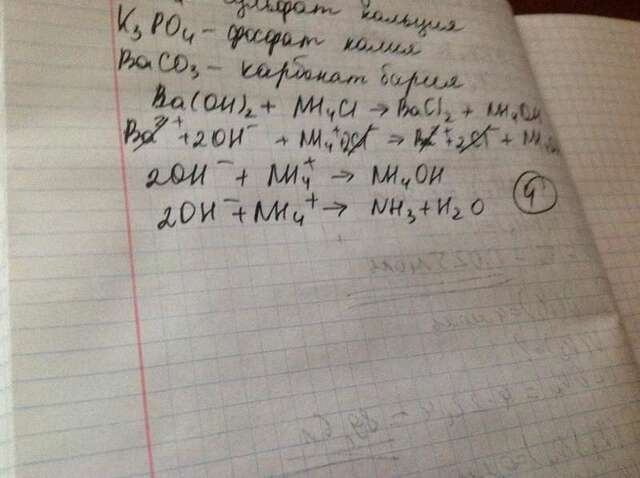 сульфат кальция
K₃PO₄ – фосфат калия
BaCO₃ – карбонат бария
Ba(OH)₂ + NH₄Cl → BaCl₂ + NH₄OH
Ba²⁺ + 2OH⁻ + NH₄⁺ 2Cl⁻ → Ba²⁺ + 2Cl⁻ +
2OH⁻ + NH₄⁺ → NH₄OH
2OH⁻ + NH₄⁺ → NH₃ + H₂O